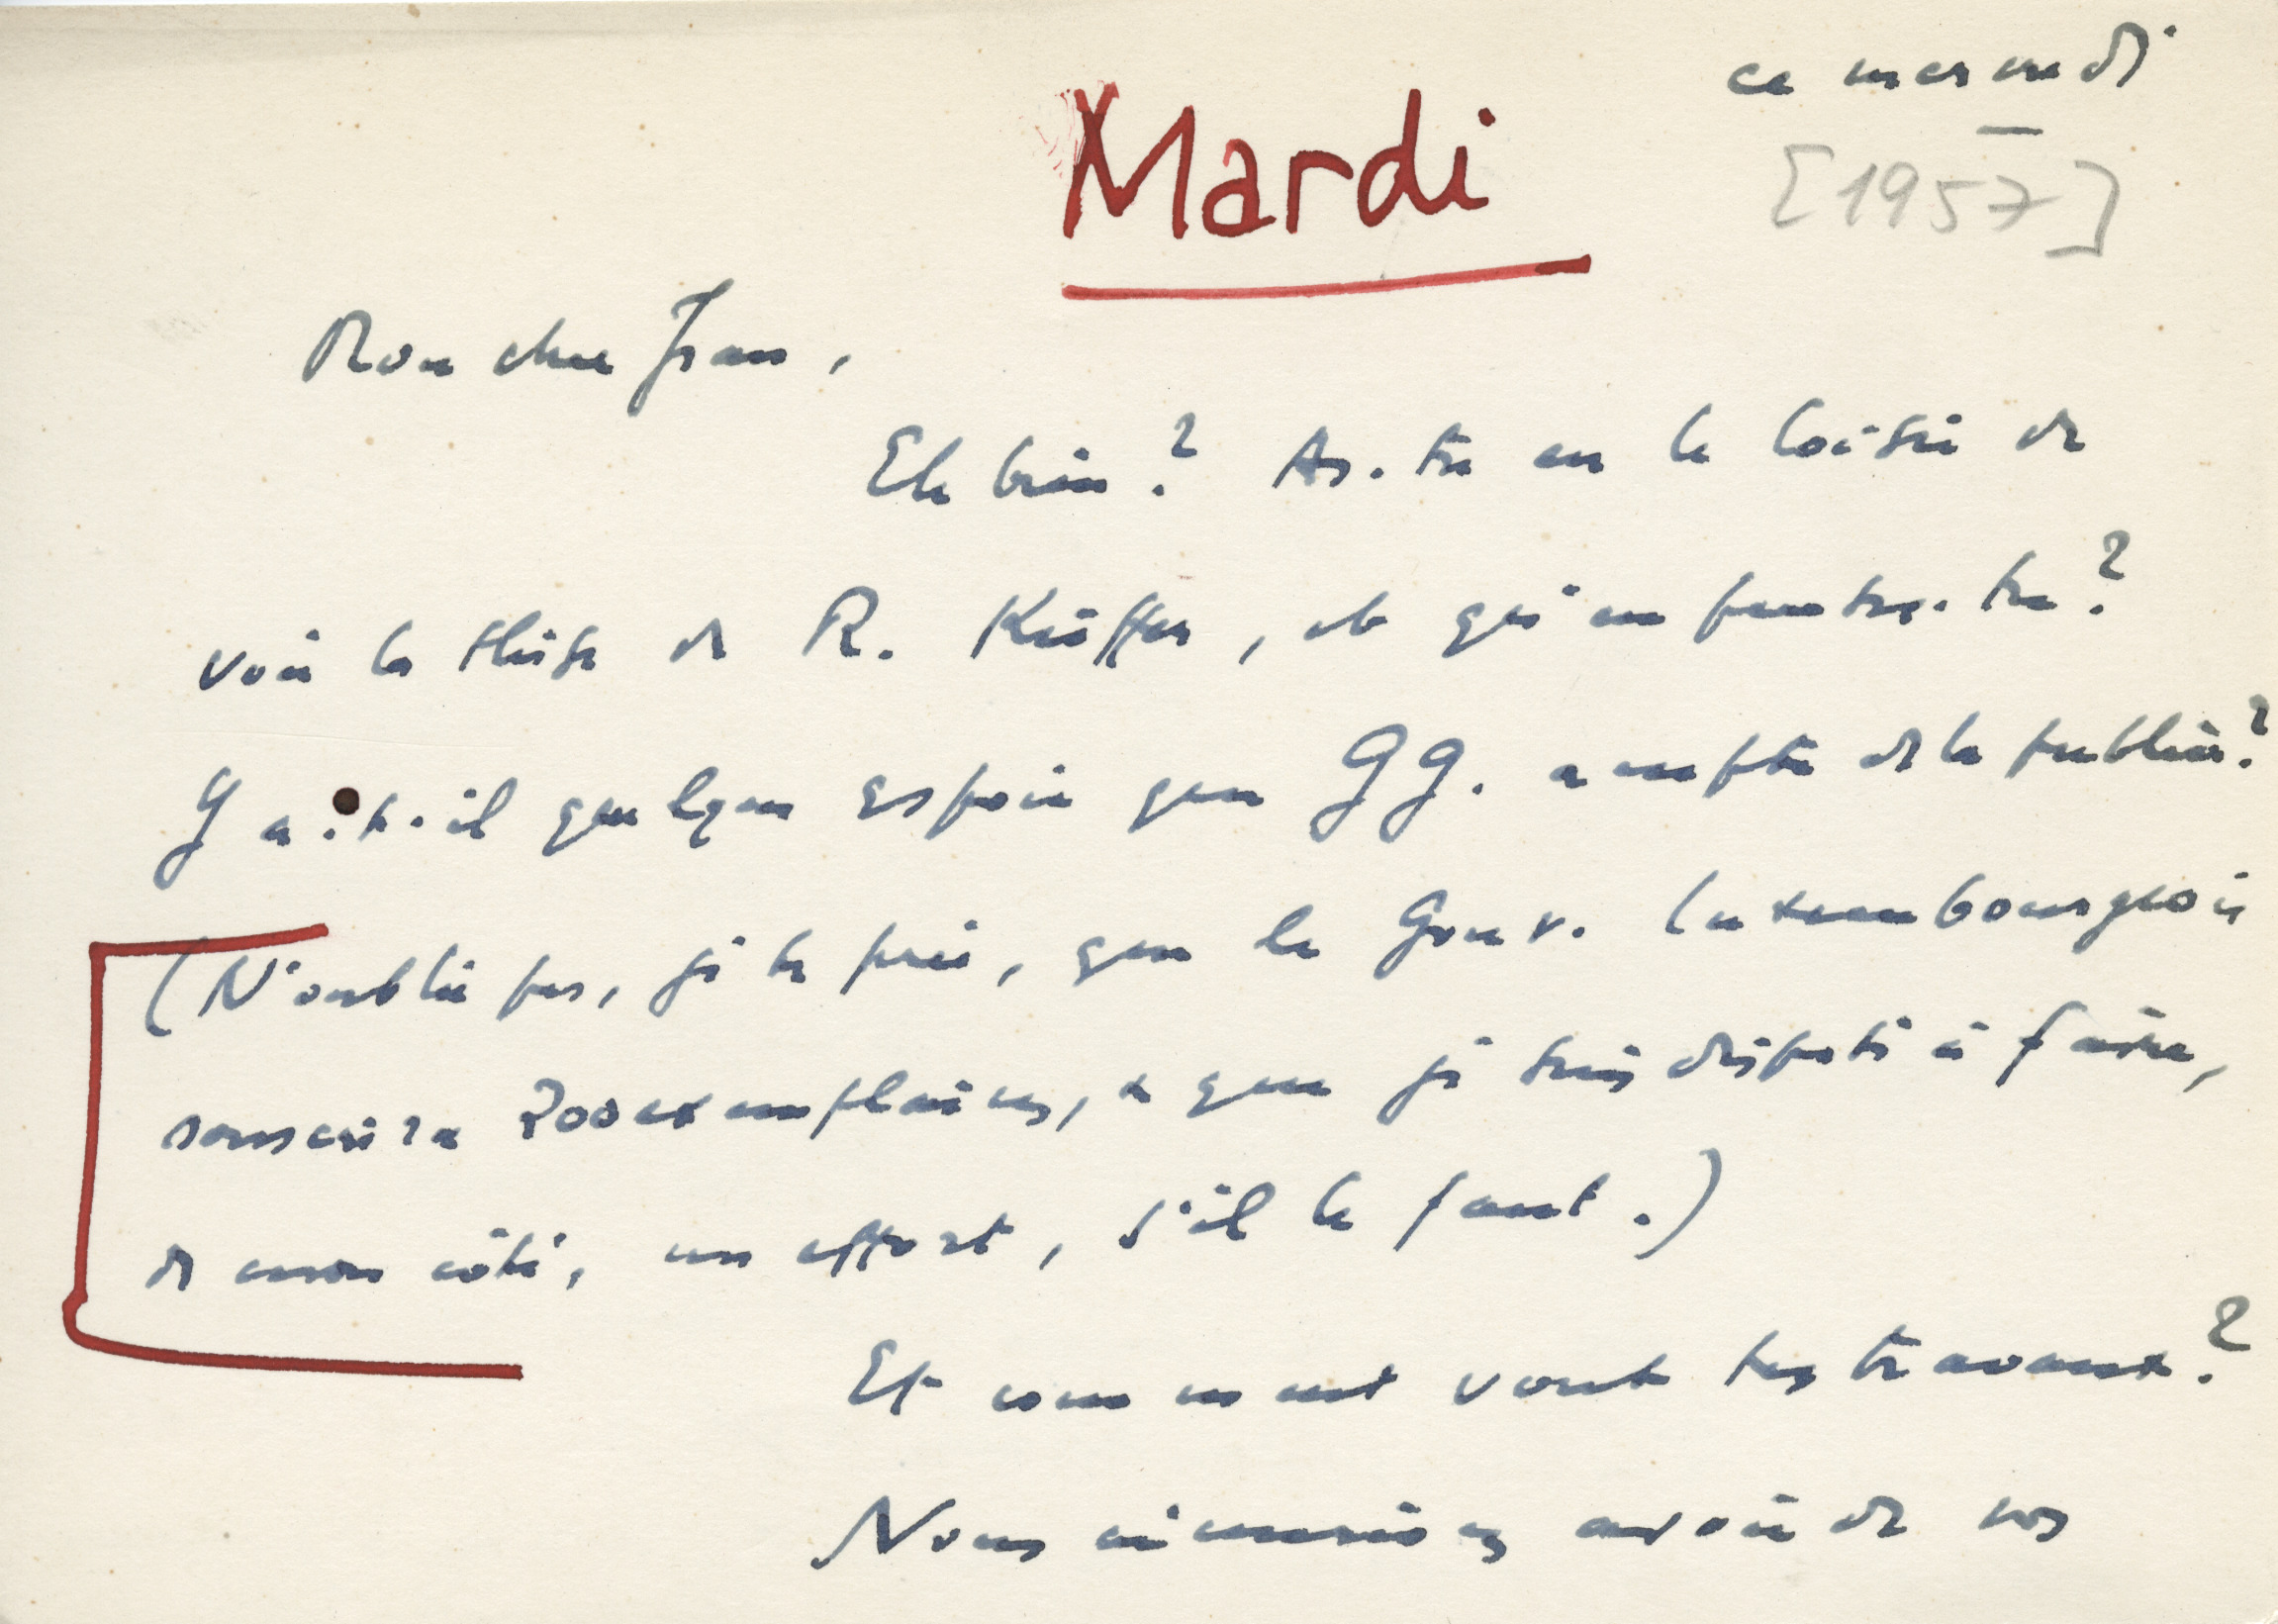 ce mercredi
Mardi
[1957]
Mon cher Jean,
Eh bien ? As-tu eu le loisir de
voir la thèse de R. Kieffer, et qu'en penses-tu ?
Y a-t-il quelque espoir que GG. accepte de la publier ?
(N'oublie pas, je te prie, que le Gouv. luxembourgeois
souscrira 200 exemplaires, & que je suis disposé à faire,
de mon côté, un effort, s'il le faut.)
Et comment vont tes travaux ?
Nous aimerions avoir de vos